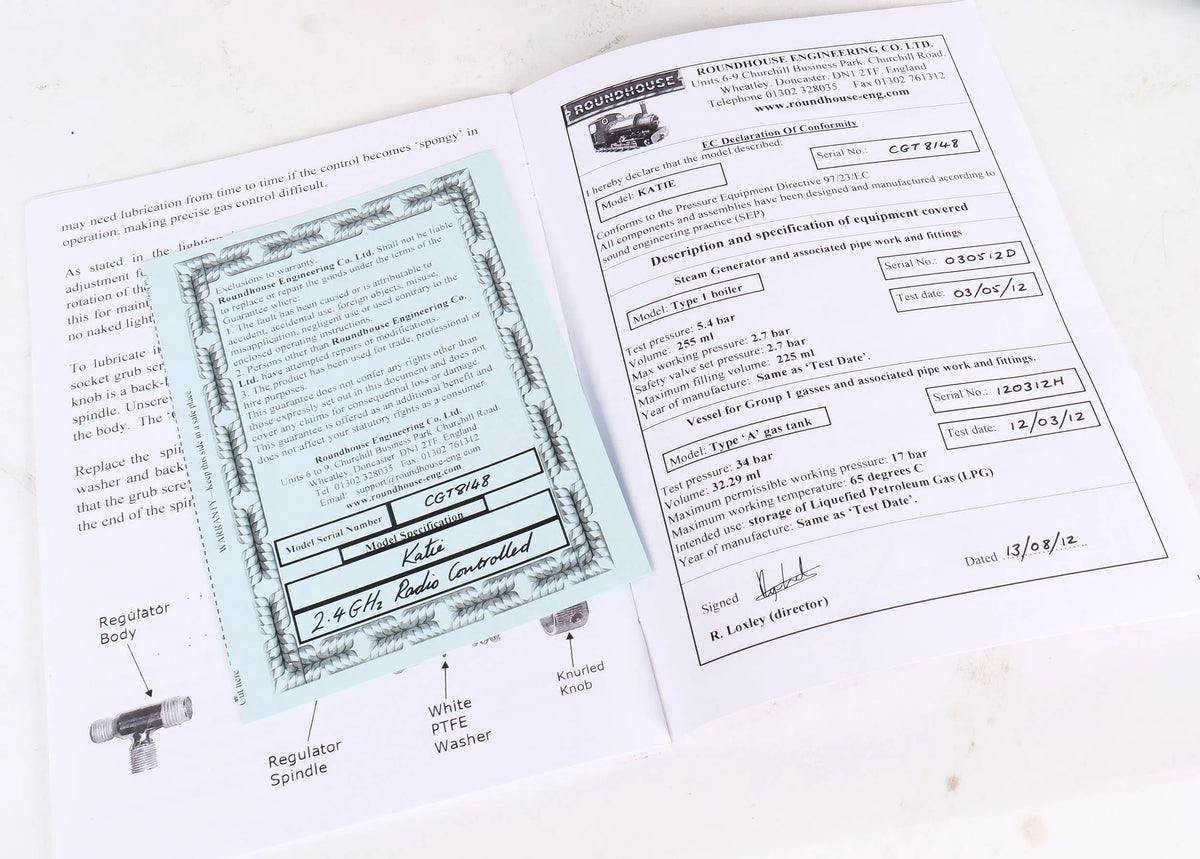 may need lubrication from time to time if the control becomes ‘spongy’ in
operation, making precise gas control difficult.
As stated in the
adjustment
rotation of the
this for
no naked
To lubricate
socket grub
knob is a
spindle.
the body. The
Replace the
washer and
that the grub
the end of the
Regulator
Body
Regulator
Spindle
White
PTFE
Washer
Knurled
Knob
WARRANTY - Keep this side in a safe place
Exclusions to warranty.
Roundhouse Engineering Co. Ltd. Shall not be liable
to replace or repair the goods under the terms of the
Guarantee where:
1. The fault has been caused or is attributable to
accident, accidental use, foreign objects, misuse,
misapplication, negligent use or used contrary to the
enclosed operating instructions.
2. Persons other than Roundhouse Engineering Co.
Ltd. have attempted repairs or modifications.
3. The product has been used for trade, professional or
hire purposes.
This guarantee does not confer any rights other than
those expressly set out in this document and does not
cover any claims for consequential loss or damage.
This guarantee is offered as an additional benefit and
does not affect your statutory rights as a consumer.
Roundhouse Engineering Co. Ltd.
Units 6 to 9, Churchill Business Park, Churchill Road.
Wheatley. Doncaster. DN1 2TF. England
Tel. 01302 328035 Fax 01302 761312
Email: support@roundhouse-eng.com
www.roundhouse-eng.com
Model Serial Number CGT8148
Model Specification
Katie
2.4GHz Radio Controlled
ROUNDHOUSE
ROUNDHOUSE ENGINEERING CO. LTD.
Units 6-9 Churchill Business Park, Churchill Road.
Wheatley. Doncaster. DN1 2TF. England
Telephone 01302 328035 Fax 01302 761312
www.roundhouse-eng.com
EC Declaration Of Conformity
I hereby declare that the model described:
Serial No.: CGT8148
Model: KATIE
Conforms to the Pressure Equipment Directive 97/23/EC
All components and assemblies have been designed and manufactured according to
sound engineering practice (SEP)
Description and specification of equipment covered
Steam Generator and associated pipe work and fittings
Serial No.: 030512D
Model: Type 1 boiler
Test date: 03/05/12
Test pressure: 5.4 bar
Volume: 255 ml
Max working pressure: 2.7 bar
Safety valve set pressure: 2.7 bar
Maximum filling volume: 225 ml
Year of manufacture: Same as ‘Test Date’.
Vessel for Group 1 gasses and associated pipe work and fittings.
Serial No.: 120312H
Model: Type ‘A’ gas tank
Test date: 12/03/12
Test pressure: 34 bar
Volume: 32.29 ml
Maximum permissible working pressure: 17 bar
Maximum working temperature: 65 degrees C
Intended use: storage of Liquefied Petroleum Gas (LPG)
Year of manufacture: Same as ‘Test Date’.
Signed
Dated 13/08/12
R. Loxley (director)